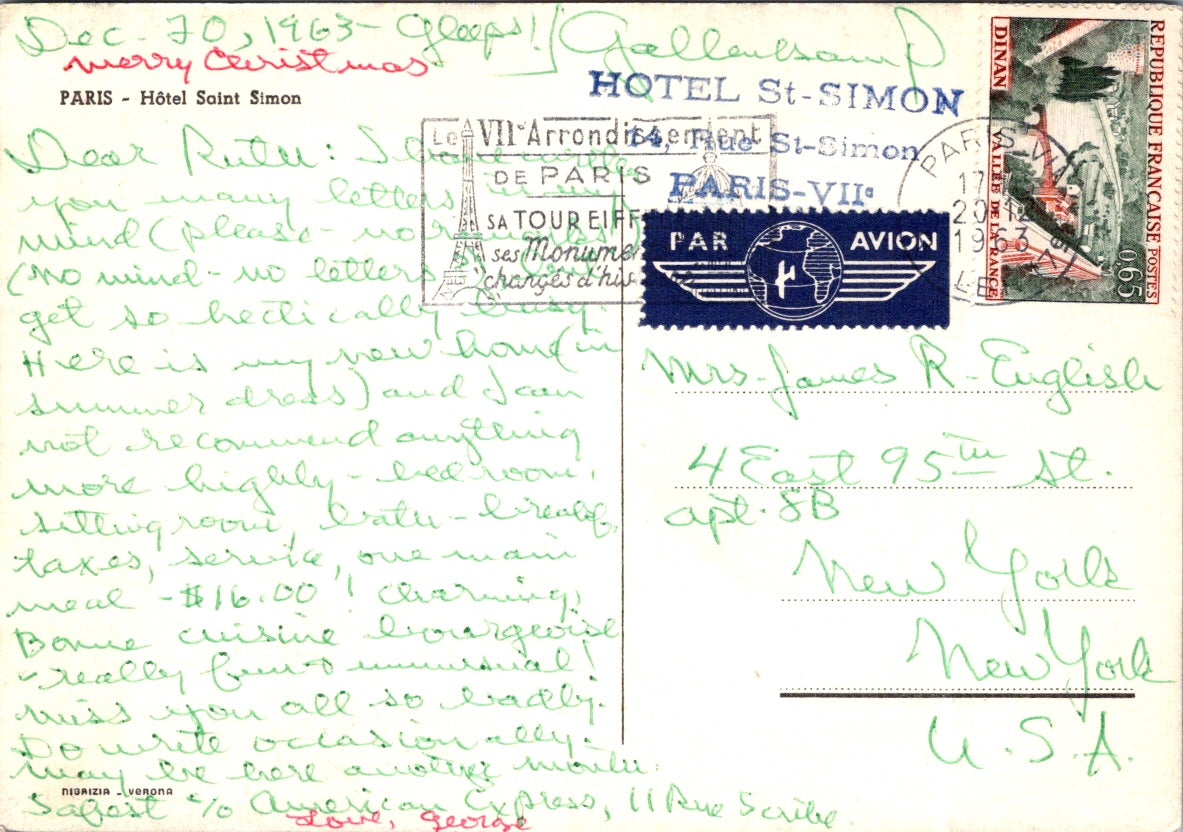 Dec. 20, 1963 - Gleeps! / Gallenkamp
Merry Christmas
PARIS - Hôtel Saint Simon
HOTEL St-SIMON
14, Rue St-Simon
PARIS-VIIe
Le VIIe Arrondissement
DE PARIS
SA TOUR EIFF
ses Monumen
chargés d'his
PAR AVION
PARIS-VII
17
20-12
1963
REPUBLIQUE FRANÇAISE POSTES
DINAN VALLÉE DE LA RANCE
0,65
Dear Ruth: I
you many letters in my
mind (please - no
(no mind - no letters
get so hectically busy.
Here is my new home (in
summer dress) and I can
not recommend anything
more highly - bedroom,
sitting room, bath - breakf,
taxes, service, one main
meal - $16.00! Charming,
Bonne cuisine bourgeoise
- really fun & unusual!
miss you all so badly.
Do write occasionally -
may be here another month.
NIGRIZIA - VERONA
Safest c/o American Express, 11 Rue Scribe.
Love, George
Mrs. James R. English
4 East 95th St.
apt. 8B
New York
New York
U.S.A.